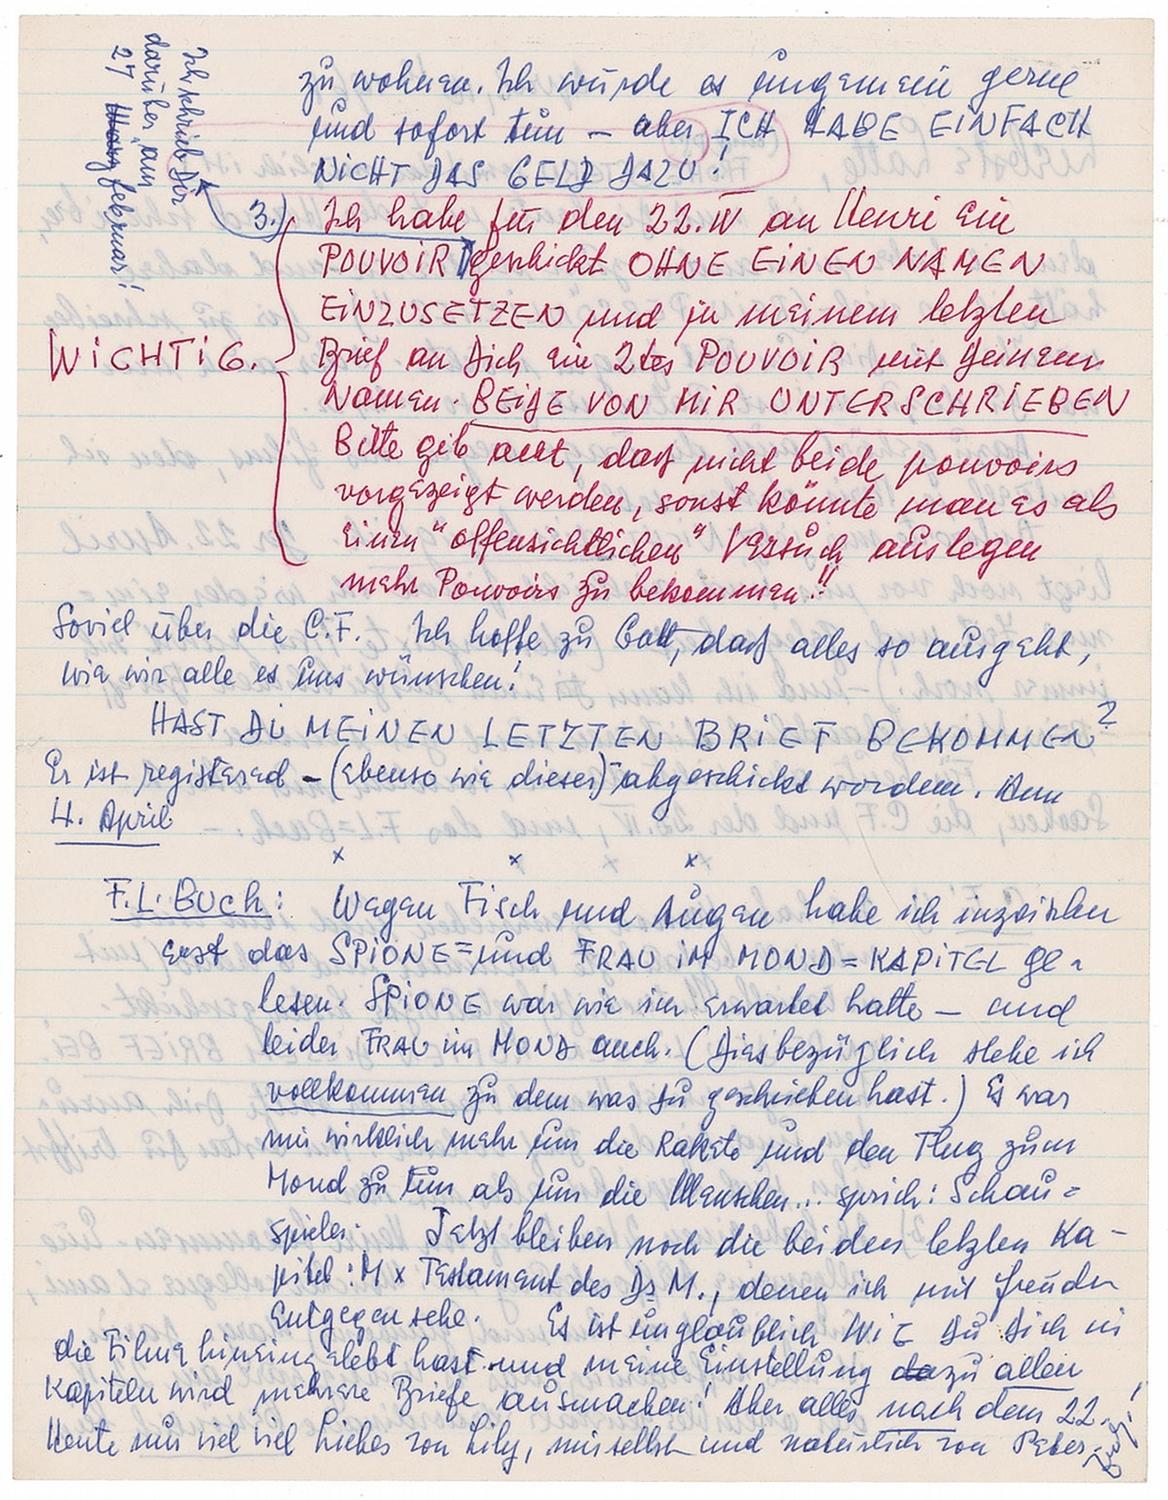 Ich schrieb Dir
darüber am
27 Februar!
zu wohnen. Ich würde es ungemein gerne
und sofort tun – aber ICH HABE EINFACH
NICHT DAS GELD DAZU!
3.) Ich habe für den 22. IV an Henri ein
POUVOIR geschickt OHNE EINEN NAMEN
EINZUSETZEN und in meinem letzten
WICHTIG. Brief an Dich ein 2tes POUVOIR mit Deinem
Namen. BEIDE VON MIR UNTERSCHRIEBEN
Bitte gib acht, dass nicht beide pouvoirs
vorgezeigt werden, sonst könnte man es als
einen "offensichtlichen" Versuch auslegen
mehr Pouvoirs zu bekommen!!
Soviel über die C.F. Ich hoffe zu Gott, dass alles so ausgeht,
wie wir alle es uns wünschen!
HAST DU MEINEN LETZTEN BRIEF BEKOMMEN?
Er ist registered – (ebenso wie dieser) – abgeschickt worden. Am
4. April
x x x
F.L. Buch: Wegen Fisch und Augen habe ich inzwischen
erst das SPIONE= und FRAU IM MOND=KAPITEL ge-
lesen. SPIONE war wie ich erwartet hatte – und
leider FRAU im MOND auch. (Diesbezüglich stehe ich
vollkommen zu dem was Du geschrieben hast.) Es war
mir wirklich mehr um die Rakete und den Flug zum
Mond zu tun als um die Menschen... sprich: Schau=
spieler. Jetzt bleiben noch die beiden letzten Ka-
pitel: M x Testament des Dr M., denen ich mit Freuden
entgegensehe. Es ist unglaublich WIE Du Dich in
die Filme hineingelebt hast und meine Einstellung dazu allen
Kapiteln wird mehrere Briefe ausmachen! Aber alles nach dem 22.
Heute nur viel viel Liebes von Lily, mir selbst und natürlich von Peter.